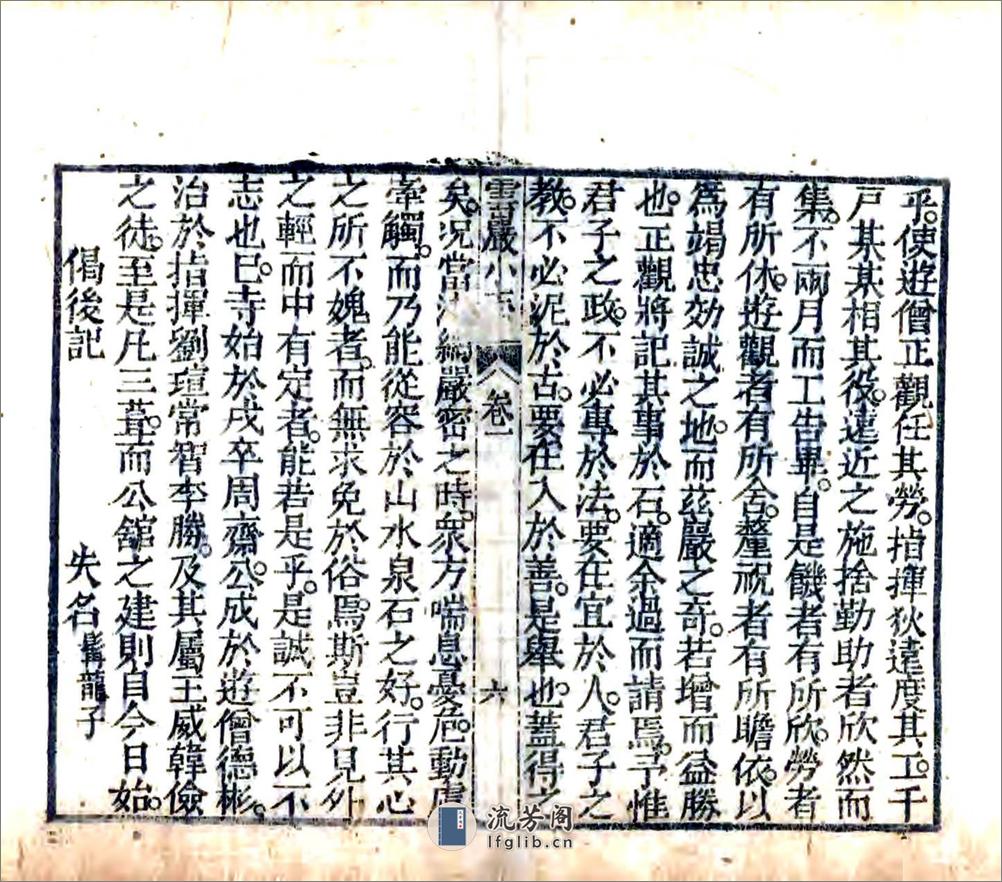 乎。使遊僧正觀任其勞。指揮狄達度其工。千
戸某某相其役。遠近之施捨勤助者欣然而
集。不兩月而工告畢。自是饑者有所欣。勞者
有所休。遊觀者有所舍。釐祝者有所瞻依。以
為竭忠効誠之地。而茲巖之奇。若增而益勝
也。正觀將記其事於石。適余過而請焉。予惟
君子之政。不必專於法。要在宜於人。君子之
教。不必泥於古。要在入於善。是舉也。蓋得之
雲巖小 卷一 六
矣。况當 嚴密之時。衆方喘息憂危。動虞
牽觸。而乃能從容於山水泉石之好。行其心
之所不媿者。而無求免於俗焉。斯豈非見外
之輕而中有定者。能若是乎。是誠不可以不
志也巳。寺始於戍卒周齋公。成於遊僧德彬。
治於指揮劉瑄常智李勝。及其屬王威韓儉
之徒。至是凡三葺。而公舘之建則自今日始。
偈後記 失名 髯龍子
流芳阁
lfglib.cn